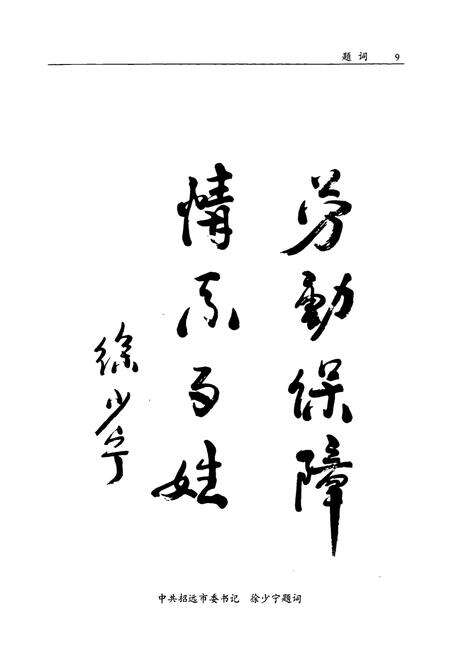 题词 9
劳动保障
情系百姓
徐少宁
中共招远市委书记 徐少宁题词